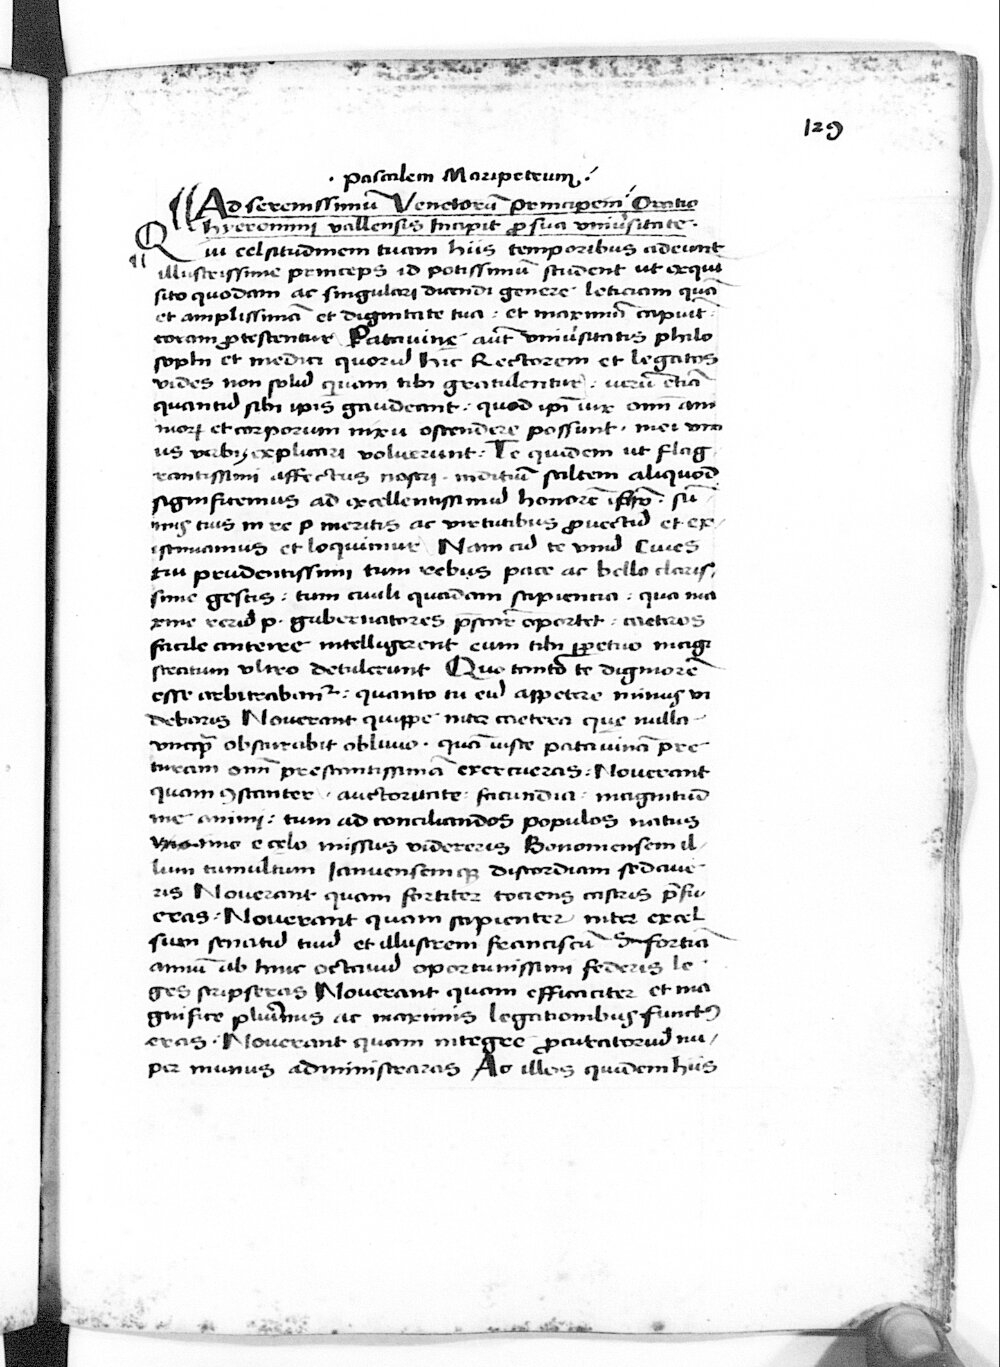 129
· Pascalem Maripetrum ·
Ad serenissimū Venetorū principem Oratio
hyeronimi vallensis Incipit ꝓ sua univ̄sitate ·
Qui celsitudinem tuam hiis temporibus adeunt
illustrissime princeps id potissimū student ut exqui
sito quodam ac singulari dicendi genere leticiam quā
et amplissimā et dignitate tua : et maximū capiūt :
toram ꝓtestentur Patavine aūt univ̄sitatis philo
sophi et medici quorū hic Rectorem et legatos
vides non solū quam tibi gratulentur : verū etiā
quantū sibi ipis gaudeant : quod ipī vix omī ani
moꝝ et corporum nixu ostendere possunt · mei
us verbis explicari voluerunt : Te quidem ut flag
rantissimi affectus nostri · inditiū saltem aliquod
significemus ad excellentissimū honorē · sū
mis tuis in re p meritis ac virtutibus ꝓvectū et ex
istimamus et loquimur Nam cū te unū Cives
tui prudentissimi tum rebus pace ac bello claris
sime gestis : tum civili quadam sapientia : qua ma
xime rerū p · gubernatores oportet : caeteros
facile anteire intelligerent eum tibi ꝑpetuo magi
stratum ultro detulerunt Quo tanto te digniorē
esse arbitrabant̄ : quanto tu eū appetere minus vi
debaris Noverant quippe inter caetera que nulla
unꝗ̃ obscurabit oblivio · quā iuste patavinā pre
turam omī prestantissimā exercueras : Noverant
quam ꝯstanter · auctoritate · facundia · magnitud
ine animi : tum ad conciliandos populos natus
immo e celo missus videreris Bononiensem il
lum tumultum Ianuensemqꝫ discordiam sedave
ris Noverant quam fortiter tociens castris p̄fu
eras · Noverant quam sapienter inter excel
sum senatū tuū et illustrem franciscū sfortiā
annū ab hinc octavū oportunissimi federis le
ges scripseras Noverant quam efficaciter et ma
gnifice plurimis ac maximis legationibus funct9
eras · Noverant quam integre ꝓcuratorū nu
per munus administraras Ac illos quidem hiis